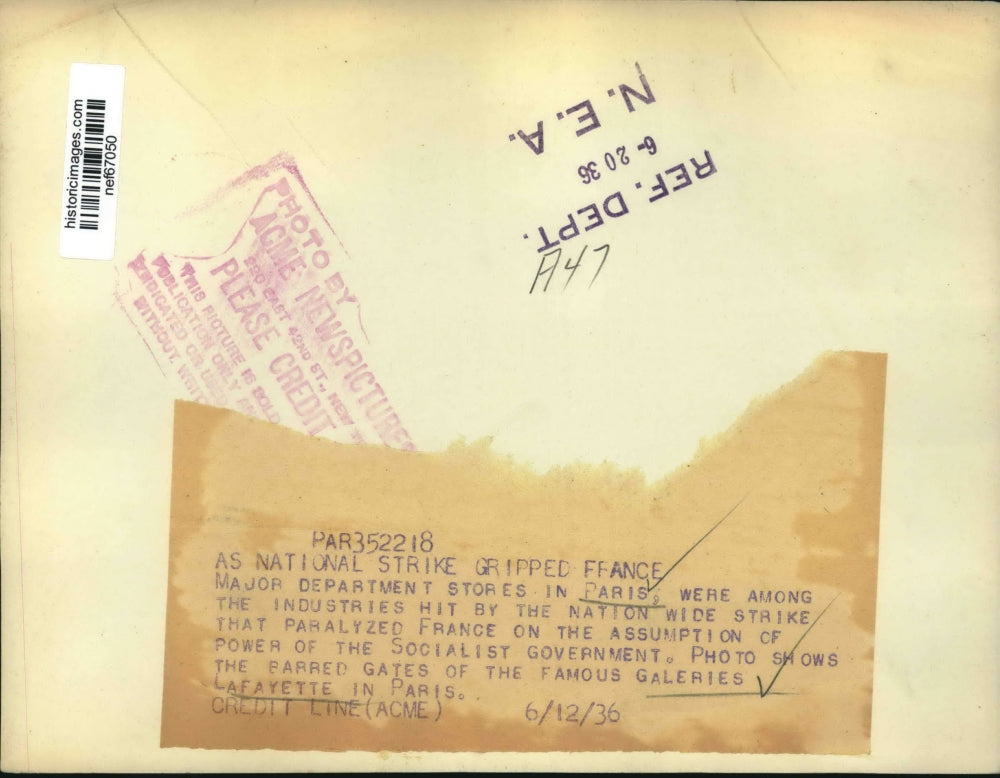 historicimages.com
nef67050
N.E.A.
6-20 36
REF. DEPT.
A47
PHOTO BY
ACME NEWSPICTURES
220 EAST 42ND ST., NEW
PLEASE CREDIT
THIS PICTURE IS SOLD
PUBLICATION ONLY
SYNDICATED OR USED
WITHOUT
PAR352218
AS NATIONAL STRIKE GRIPPED FRANCE
MAJOR DEPARTMENT STORES IN PARIS, WERE AMONG
THE INDUSTRIES HIT BY THE NATION WIDE STRIKE
THAT PARALYZED FRANCE ON THE ASSUMPTION OF
POWER OF THE SOCIALIST GOVERNMENT. PHOTO SHOWS
THE BARRED GATES OF THE FAMOUS GALERIES
LAFAYETTE IN PARIS.
CREDIT LINE(ACME) 6/12/36